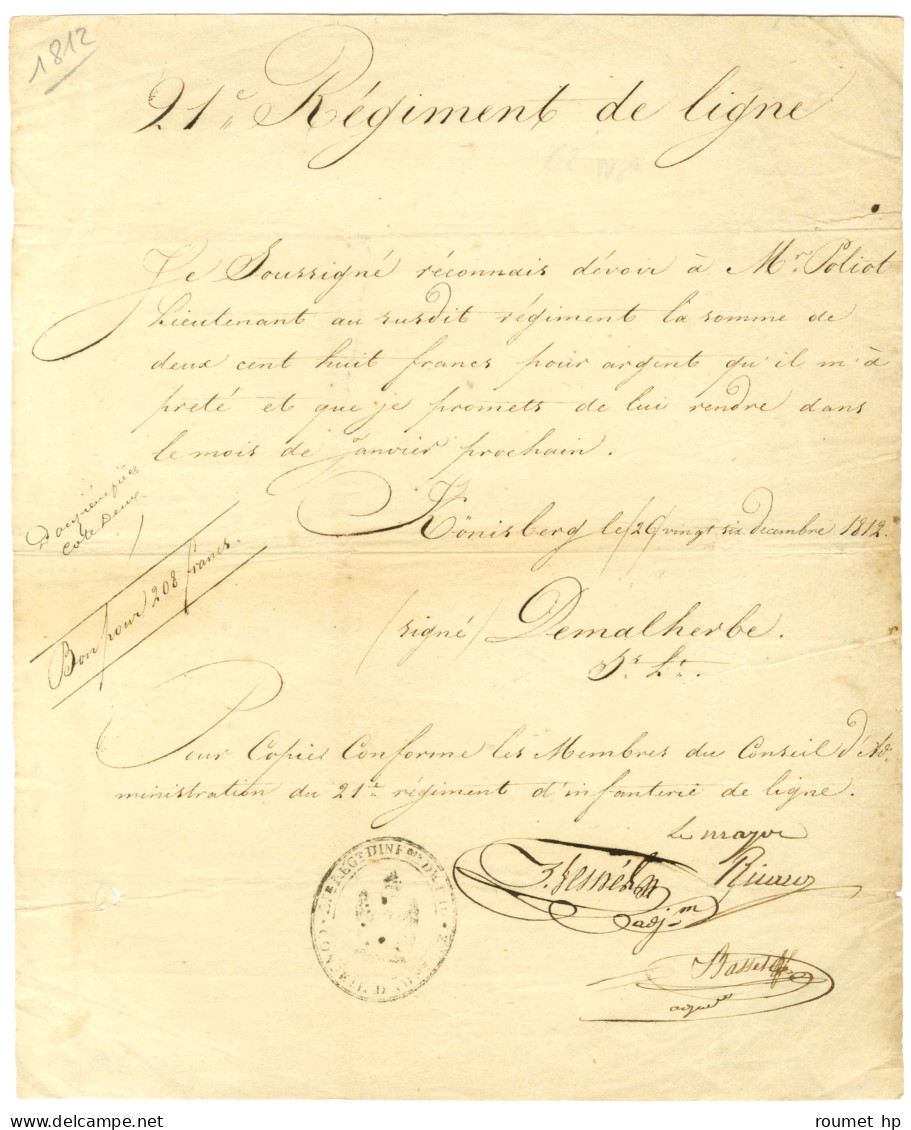 1812
21e Régiment de ligne
Je Soussigné réconnais dévoir à Mr. Poliot
Lieutenant au susdit régiment la somme de
deux cent huit francs pour argent qu'il m'à
preté et que je promets de lui rendre dans
le mois de Janvier prochain.
Cote Deux
Könisberg le /26/ vingt six decembre 1812.
Bon pour 208 francs.
(signé) Demalherbe.
Ss. Lt.
Pour Copie Conforme les Membres du Conseil d'Ad-
ministration du 21e régiment d'infanterie de ligne.
Le major
adj. m
CONSEIL D'ADM
delcampe.net
roumet hp